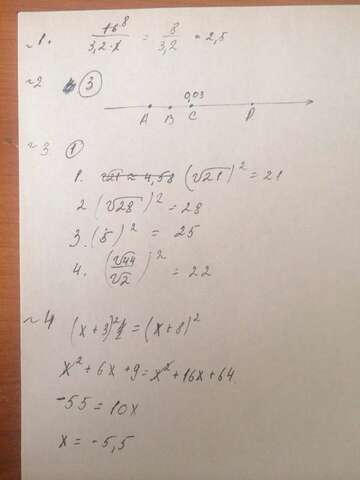 №1. 16⁸/3,2·2 = 8/3,2 = 2,5
№2 3
0,03
A B C D
№3 1
1. √21 ≈ 4,58 (√21)² = 21
2 (√28)² = 28
3. (5)² = 25
4. (√44/√2)² = 22
№4 (x+3)² = (x+8)²
x² + 6x + 9 = x² + 16x + 64
-55 = 10x
x = -5,5